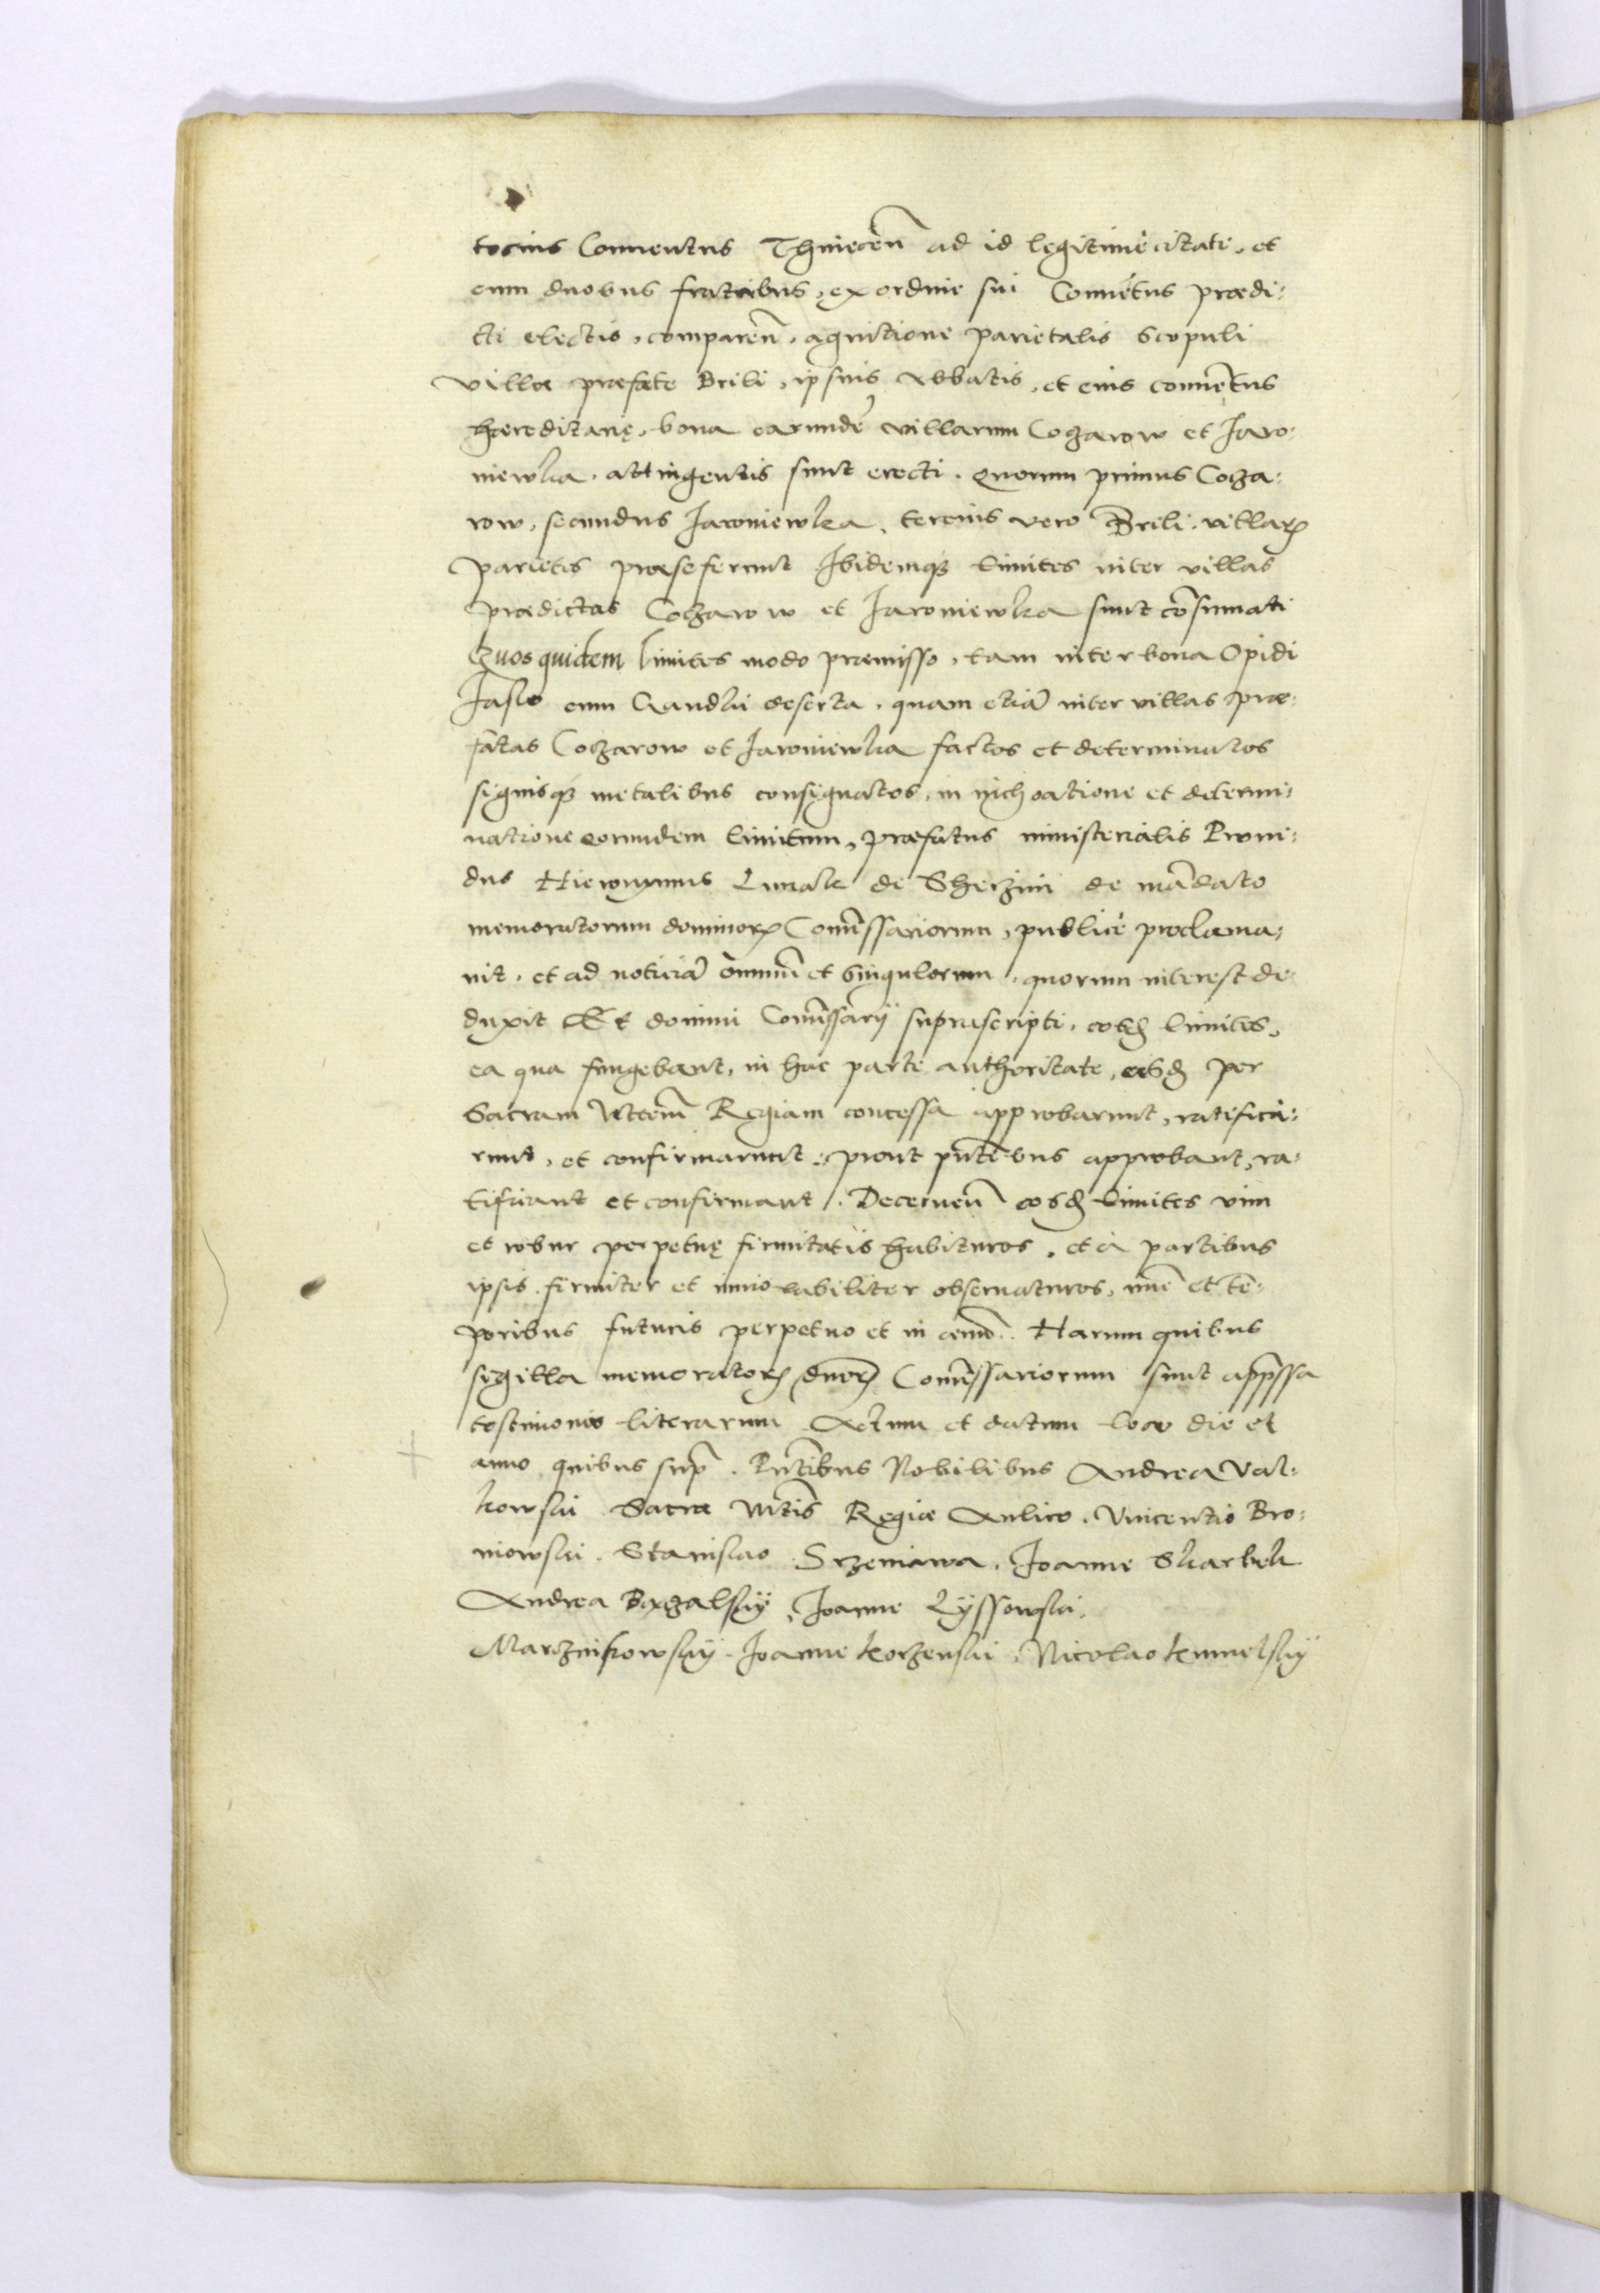 tocius Conuentus Thinecen̄ ad id legitimè citati, et
cum duobus fratribus, ex ordine sui Conuētus prædi:
cti electis, comparen̄, agnitione parietalis Scopuli
villæ præfatæ Brili, ipsius Abbatis, et eius conuētus
hæreditarię, bona earundē villarum Coczarow et Jaro:
niewka, attingentis sunt erecti. Quorum primus Cocza:
row, secundus Jaroniewka, tercius vero Brili, villarꝫ
parietes præseferunt Ibidemqꝫ limites inter villas
prædictas Coczarow et Jaroniewka sunt cōsumati
Quos quidem limites modo præmisso, tam inter bona Opidi
Jaslo cum Gandki deserta, quam etiā inter villas præ:
fatas Coczarow et Jaroniewka factos et determinatos
signisqꝫ metalibus consignatos, in inchoatione et determi:
natione eorundem limitum, præfatus ministerialis Proui:
dus Hieronymus de mādato
memoratorum dominorꝫ Com̄issariorum, publicè proclama:
uit, et ad noticiā omniū et singulorum, quorum interest de:
duxit Et domini Com̄issarij suprascripti, eosdꝫ limites,
ea qua fungebant, in hac parte authoritate, eisdꝫ per
Sacram Mttem̄ Regiam concessa approbarunt, ratifica:
runt, et confirmarunt, prout pn̄tibus approbant, ra:
tificant et confirmant. Decernen̄ eosdꝫ limites vim
et robur perpetuę firmitatis habituros, et à partibus
ipsis firmiter et inuiolabiliter obseruaturos, nūc et tē:
poribus futuris perpetuo et in æuū. Harum quibus
sigilla memoratorꝫ dnorꝫ Com̄issariorum sunt app̄ssa
testimonio literarum Actum et datum loco die et
anno quibus sup̄. Pn̄tibus Nobilibus Andrea Val:
kowski Sacræ Mtis̄ Regiæ Aulico, Vincentio Bro:
niowski, Stanislao Srzeniawa, Joanne Skarbek
Andrea Joanne Lyssowski,
Joanne Korzenski, Nicolao